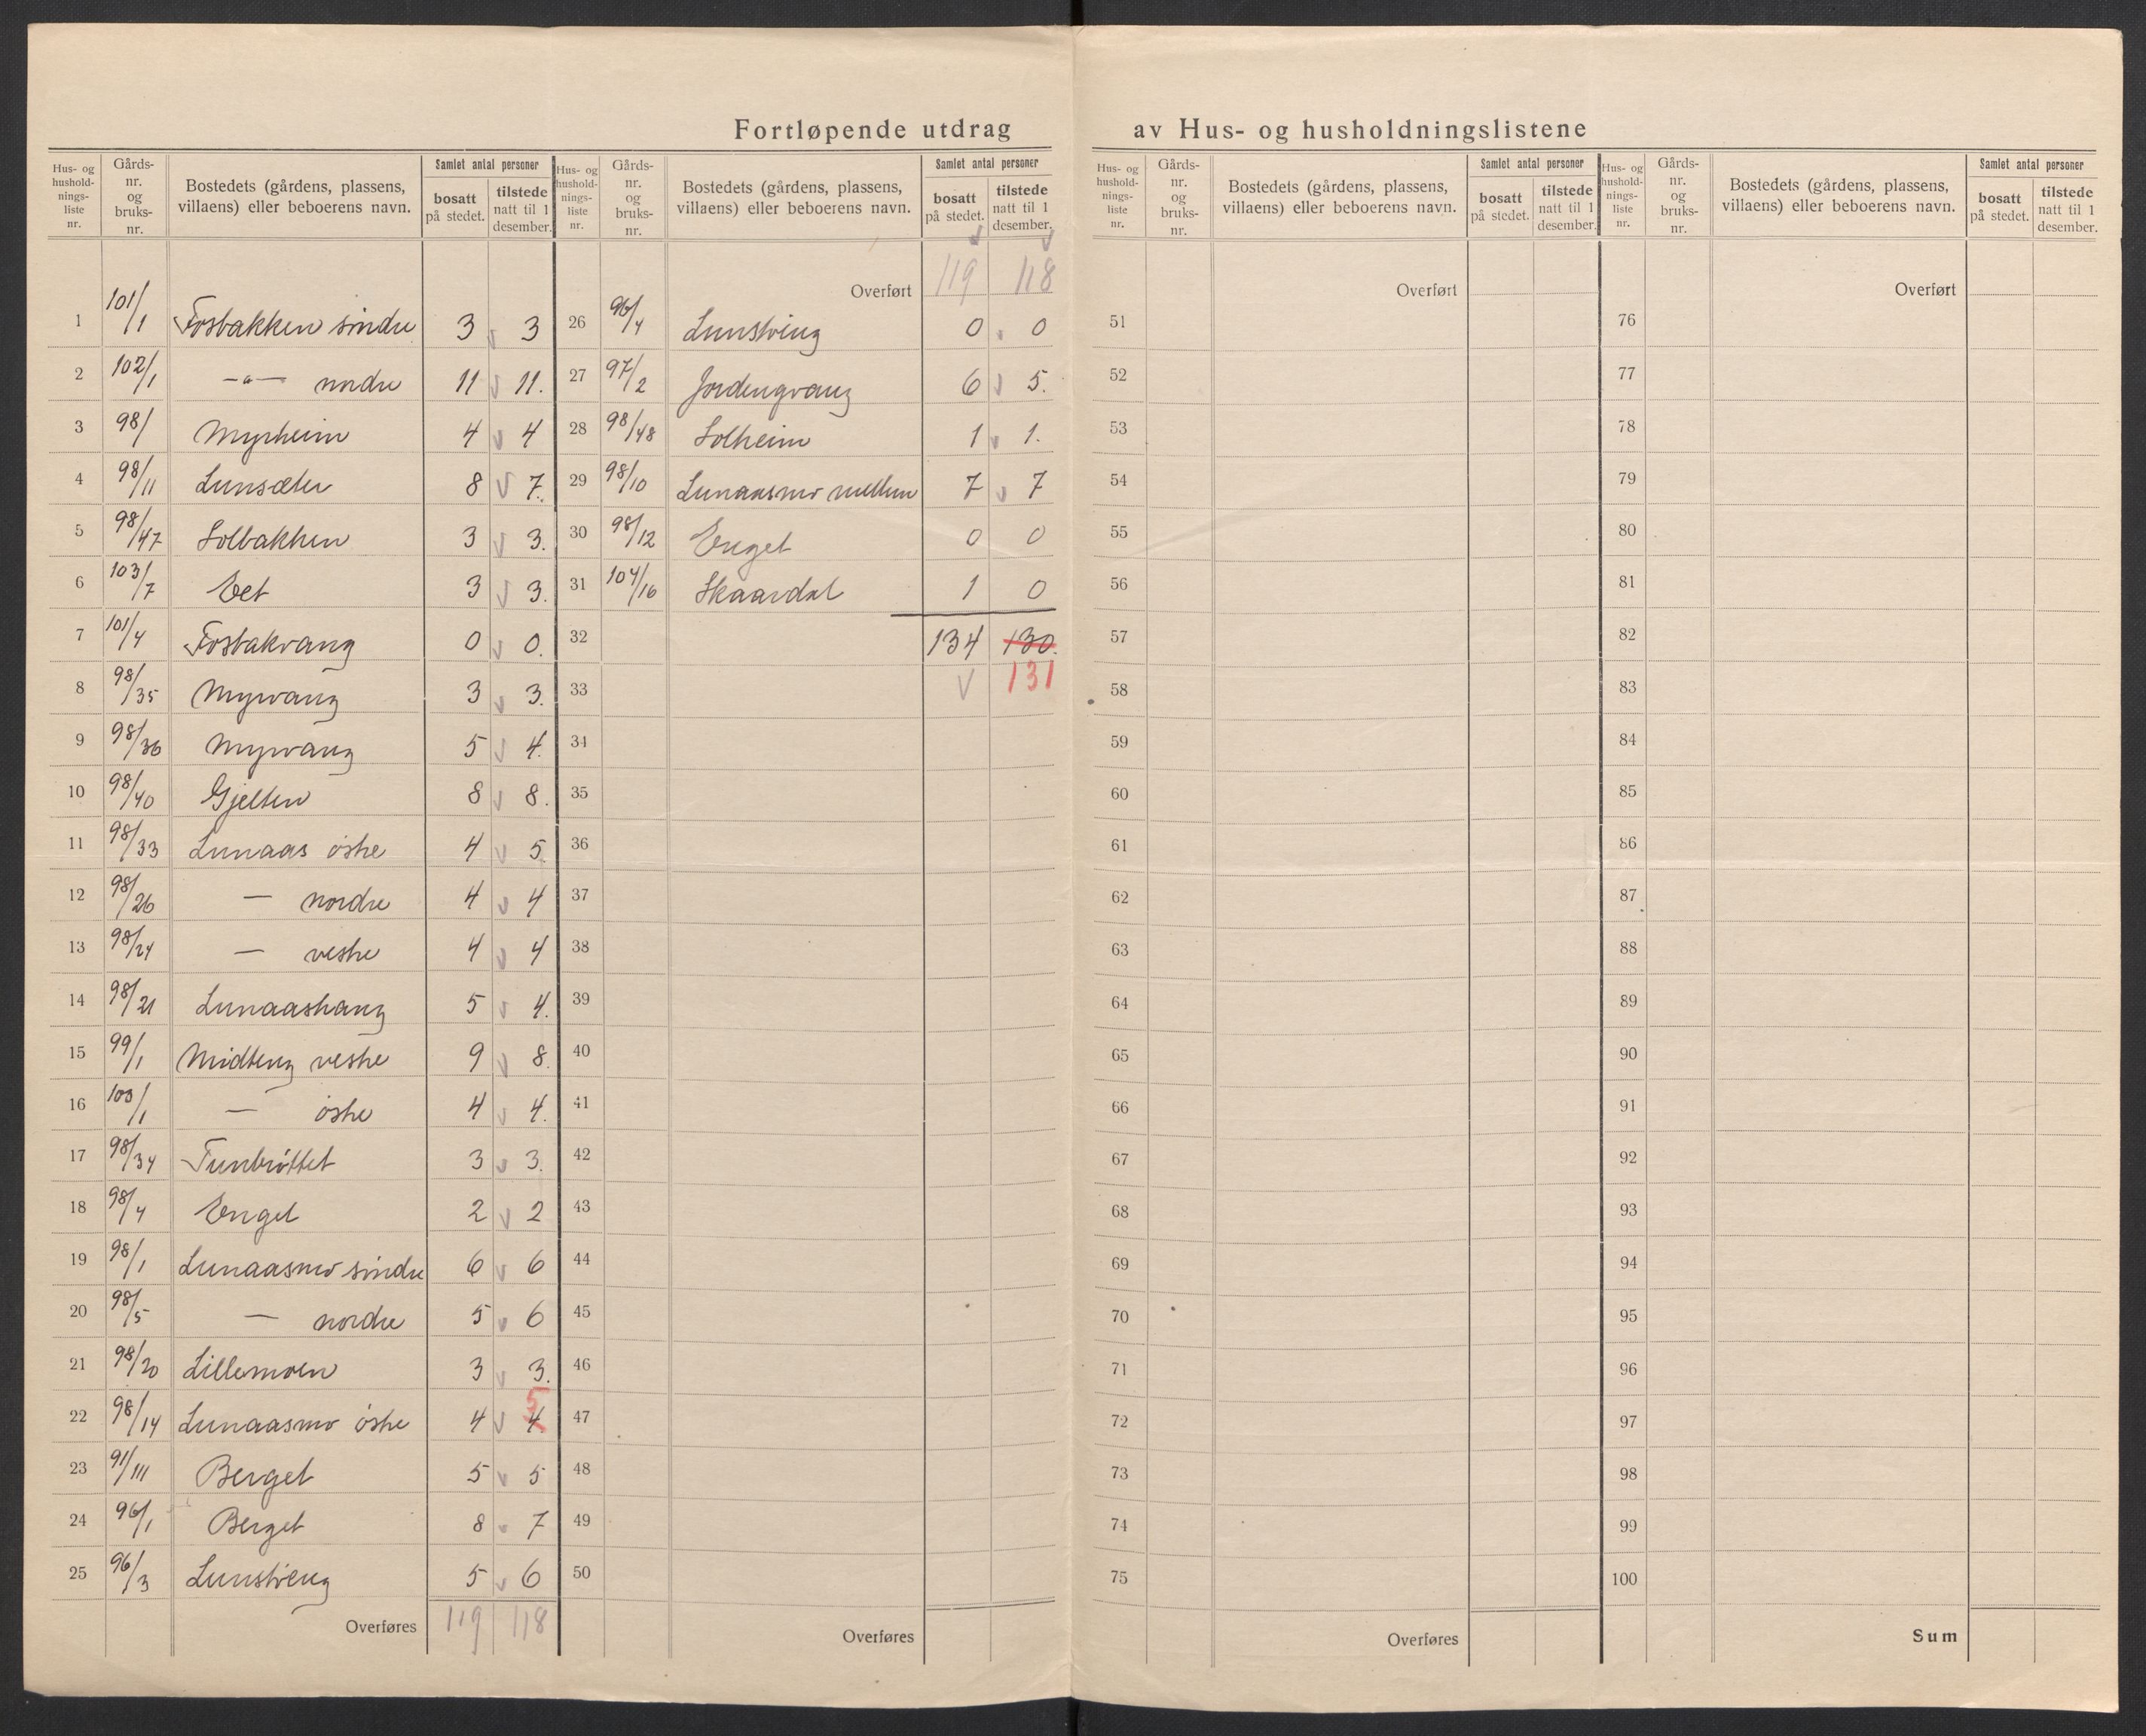 Fortløpende utdrag av Hus- og husholdningslistene
Hus- og hushold- nings- liste nr. Gårds- nr. og bruks- nr. Bostedets (gårdens, plassens, villaens) eller beboerens navn. Samlet antal personer bosatt på stedet. tilstede natt til 1 desember.
1 101/1 Fosbakken søndre 3 v 3
2 102/1 -"- nordre 11 v 11.
3 98/ Myrheim 4 v 4
4 98/11 Lunsæter 8 v 7.
5 98/47 Solbakken 3 v 3.
6 103/7 Eet 3 v 3.
7 101/4 Fosbakvang 0 v 0.
8 98/35 Myrvang 3 v 3.
9 98/36 Myrvang 5 v 4.
10 98/40 Gjelten 8 v 8.
11 98/33 Lunaas østre 4 v 5.
12 98/26 — nordre 4 v 4
13 98/24 — vestre 4 v 4
14 98/21 Lunaashaug 5 v 4.
15 99/1 Midteng vestre 9 v 8.
16 100/1 — østre 4 v 4.
17 98/34 Tunbrøttet 3 v 3.
18 98/4 Enget 2 v 2
19 98/1 Lunaasmo søndre 6 v 6
20 98/5 — nordre 5 v 6
21 98/20 Lillemoen 3 v 3.
22 98/14 Lunaasmo østre 4 v 4 5
23 91/111 Berget 5 v 5
24 96/1 Berget 8 v 7
25 96/3 Lunstrøng 5 v 6
Overføres 119 118
Hus- og hushold- nings- liste nr. Gårds- nr. og bruks- nr. Bostedets (gårdens, plassens, villaens) eller beboerens navn. Samlet antal personer bosatt på stedet. tilstede natt til 1 desember.
v v
Overført 119 118
26 96/4 Lunstrøng 0 0
27 97/2 Jordengvang 6 v 5.
28 98/48 Solheim 1 v 1.
29 98/10 Lunaasmo mellem 7 v 7
30 98/12 Enget 0 0
31 104/16 Skaardal 1 0
32 134 130.
33 v 131
34
35
36
37
38
39
40
41
42
43
44
45
46
47
48
49
50
Overføres
Hus- og hushold- nings- liste nr. Gårds- nr. og bruks- nr. Bostedets (gårdens, plassens, villaens) eller beboerens navn. Samlet antal personer bosatt på stedet. tilstede natt til 1 desember.
Overført
51
52
53
54
55
56
57
58
59
60
61
62
63
64
65
66
67
68
69
70
71
72
73
74
75
Overføres
Hus- og hushold- nings- liste nr. Gårds- nr. og bruks- nr. Bostedets (gårdens, plassens, villaens) eller beboerens navn. Samlet antal personer bosatt på stedet. tilstede natt til 1 desember.
Overført
76
77
78
79
80
81
82
83
84
85
86
87
88
89
90
91
92
93
94
95
96
97
98
99
100
Sum